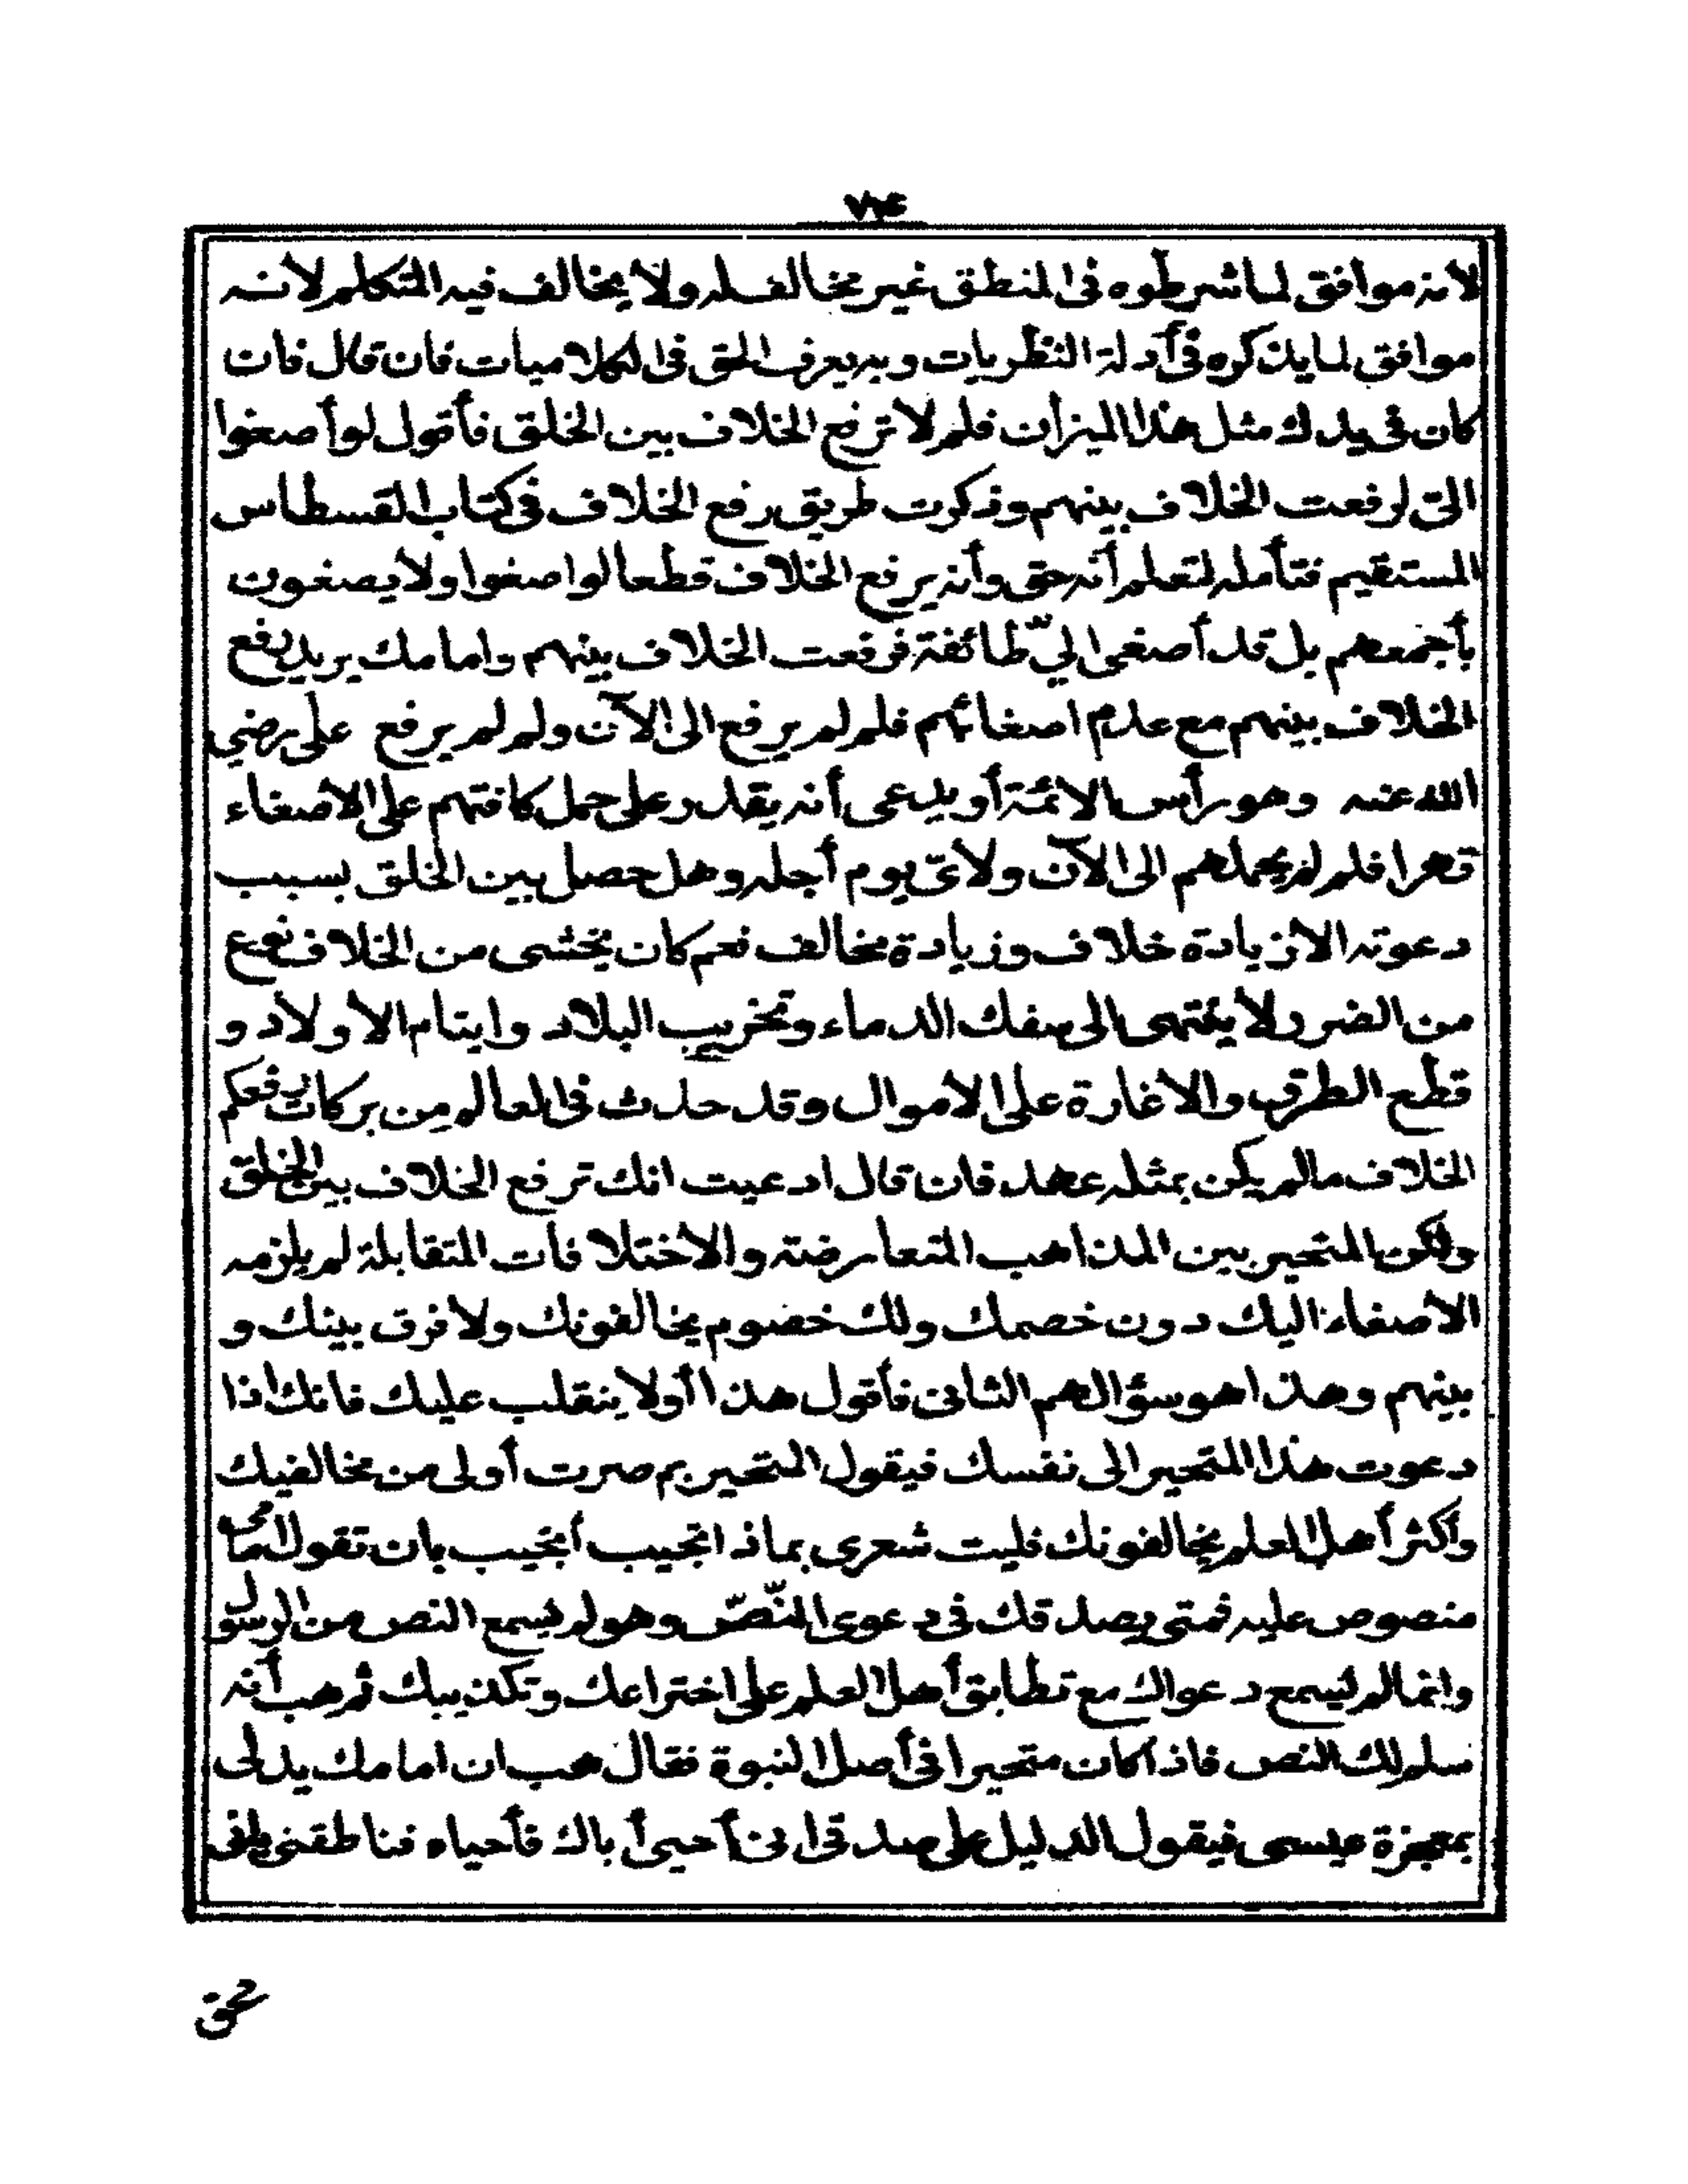 لأنه موافق لما شرطوه فى المنطق غير مخالف له ولا يخالف فيه المتكلم لأنه
موافق لما يذكره فى أدلة النظريات وبه يعرف الحق فى الكلاميات فان قال فان
كان فى يدك مثل هذا الميزان فلم لا ترفع الخلاف بين الخلق فأقول لو أصغوا
الىّ لرفعت الخلاف بينهم وذكرت طريق رفع الخلاف فى كتاب القسطاس
المستقيم فتأمله لتعلم أنه حق وأنه يرفع الخلاف قطعا لو اصغوا ولا يصغون
بأجمعهم بل قد أصغى اليّ طائفة فرفعت الخلاف بينهم وامامك يريد رفع
الخلاف بينهم مع عدم اصغائهم فلم لم يرفع الى الآن ولم لم يرفع على رضي
الله عنه وهو رأس الائمة أو يدعى أنه يقدر على حمل كافتهم على الاصغاء
قهرا فلم لم يحملهم الى الآن ولأىّ يوم أجله وهل حصل بين الخلق بسبب
دعوته الا زيادة خلاف وزيادة مخالف نعم كان يخشى من الخلاف نوع
من الضرر لا ينتهى الى سفك الدماء وتخريب البلاد وايتام الأولاد و
قطع الطرق والاغارة على الاموال وقد حدث فى العالم من بركات رفعكم
الخلاف ما لم يكن بمثله عهد فان قال ادعيت انك ترفع الخلاف بين الخلق
ولكن المتحير بين المذاهب المتعارضة والاختلافات المتقابلة لم يلزمه
الاصغاء اليك دون خصمك ولك خصوم يخالفونك ولا فرق بينك و
بينهم وهذا هو سؤالهم الثانى فأقول هذا أولا ينقلب عليك فانك اذا
دعوت هذا المتحير الى نفسك فيقول المتحير بم صرت أولى من مخالفيك
وأكثر أهل العلم يخالفونك فليت شعرى بماذا تجيب أتجيب بان تقول امامى
منصوص عليه فمتى يصدقك فى دعوى النّصّ وهو لم يسمع النص من الرسول
وانما لم يسمع دعواك مع تطابق أهل العلم على اختراعك وتكذيبك ثم هب أنه
سلم لك النص فاذا كان متحيرا فى أصل النبوة فقال هب ان امامك يدلى
بمعجزة عيسى فيقول الدليل على صدقى انى أحيى أباك فأحياه فناطقنى
محق